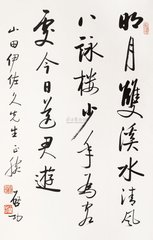 明月雙溪水清風
八詠樓少年為客
處今日送君遊
山田伊佐久先生正拂 啟功